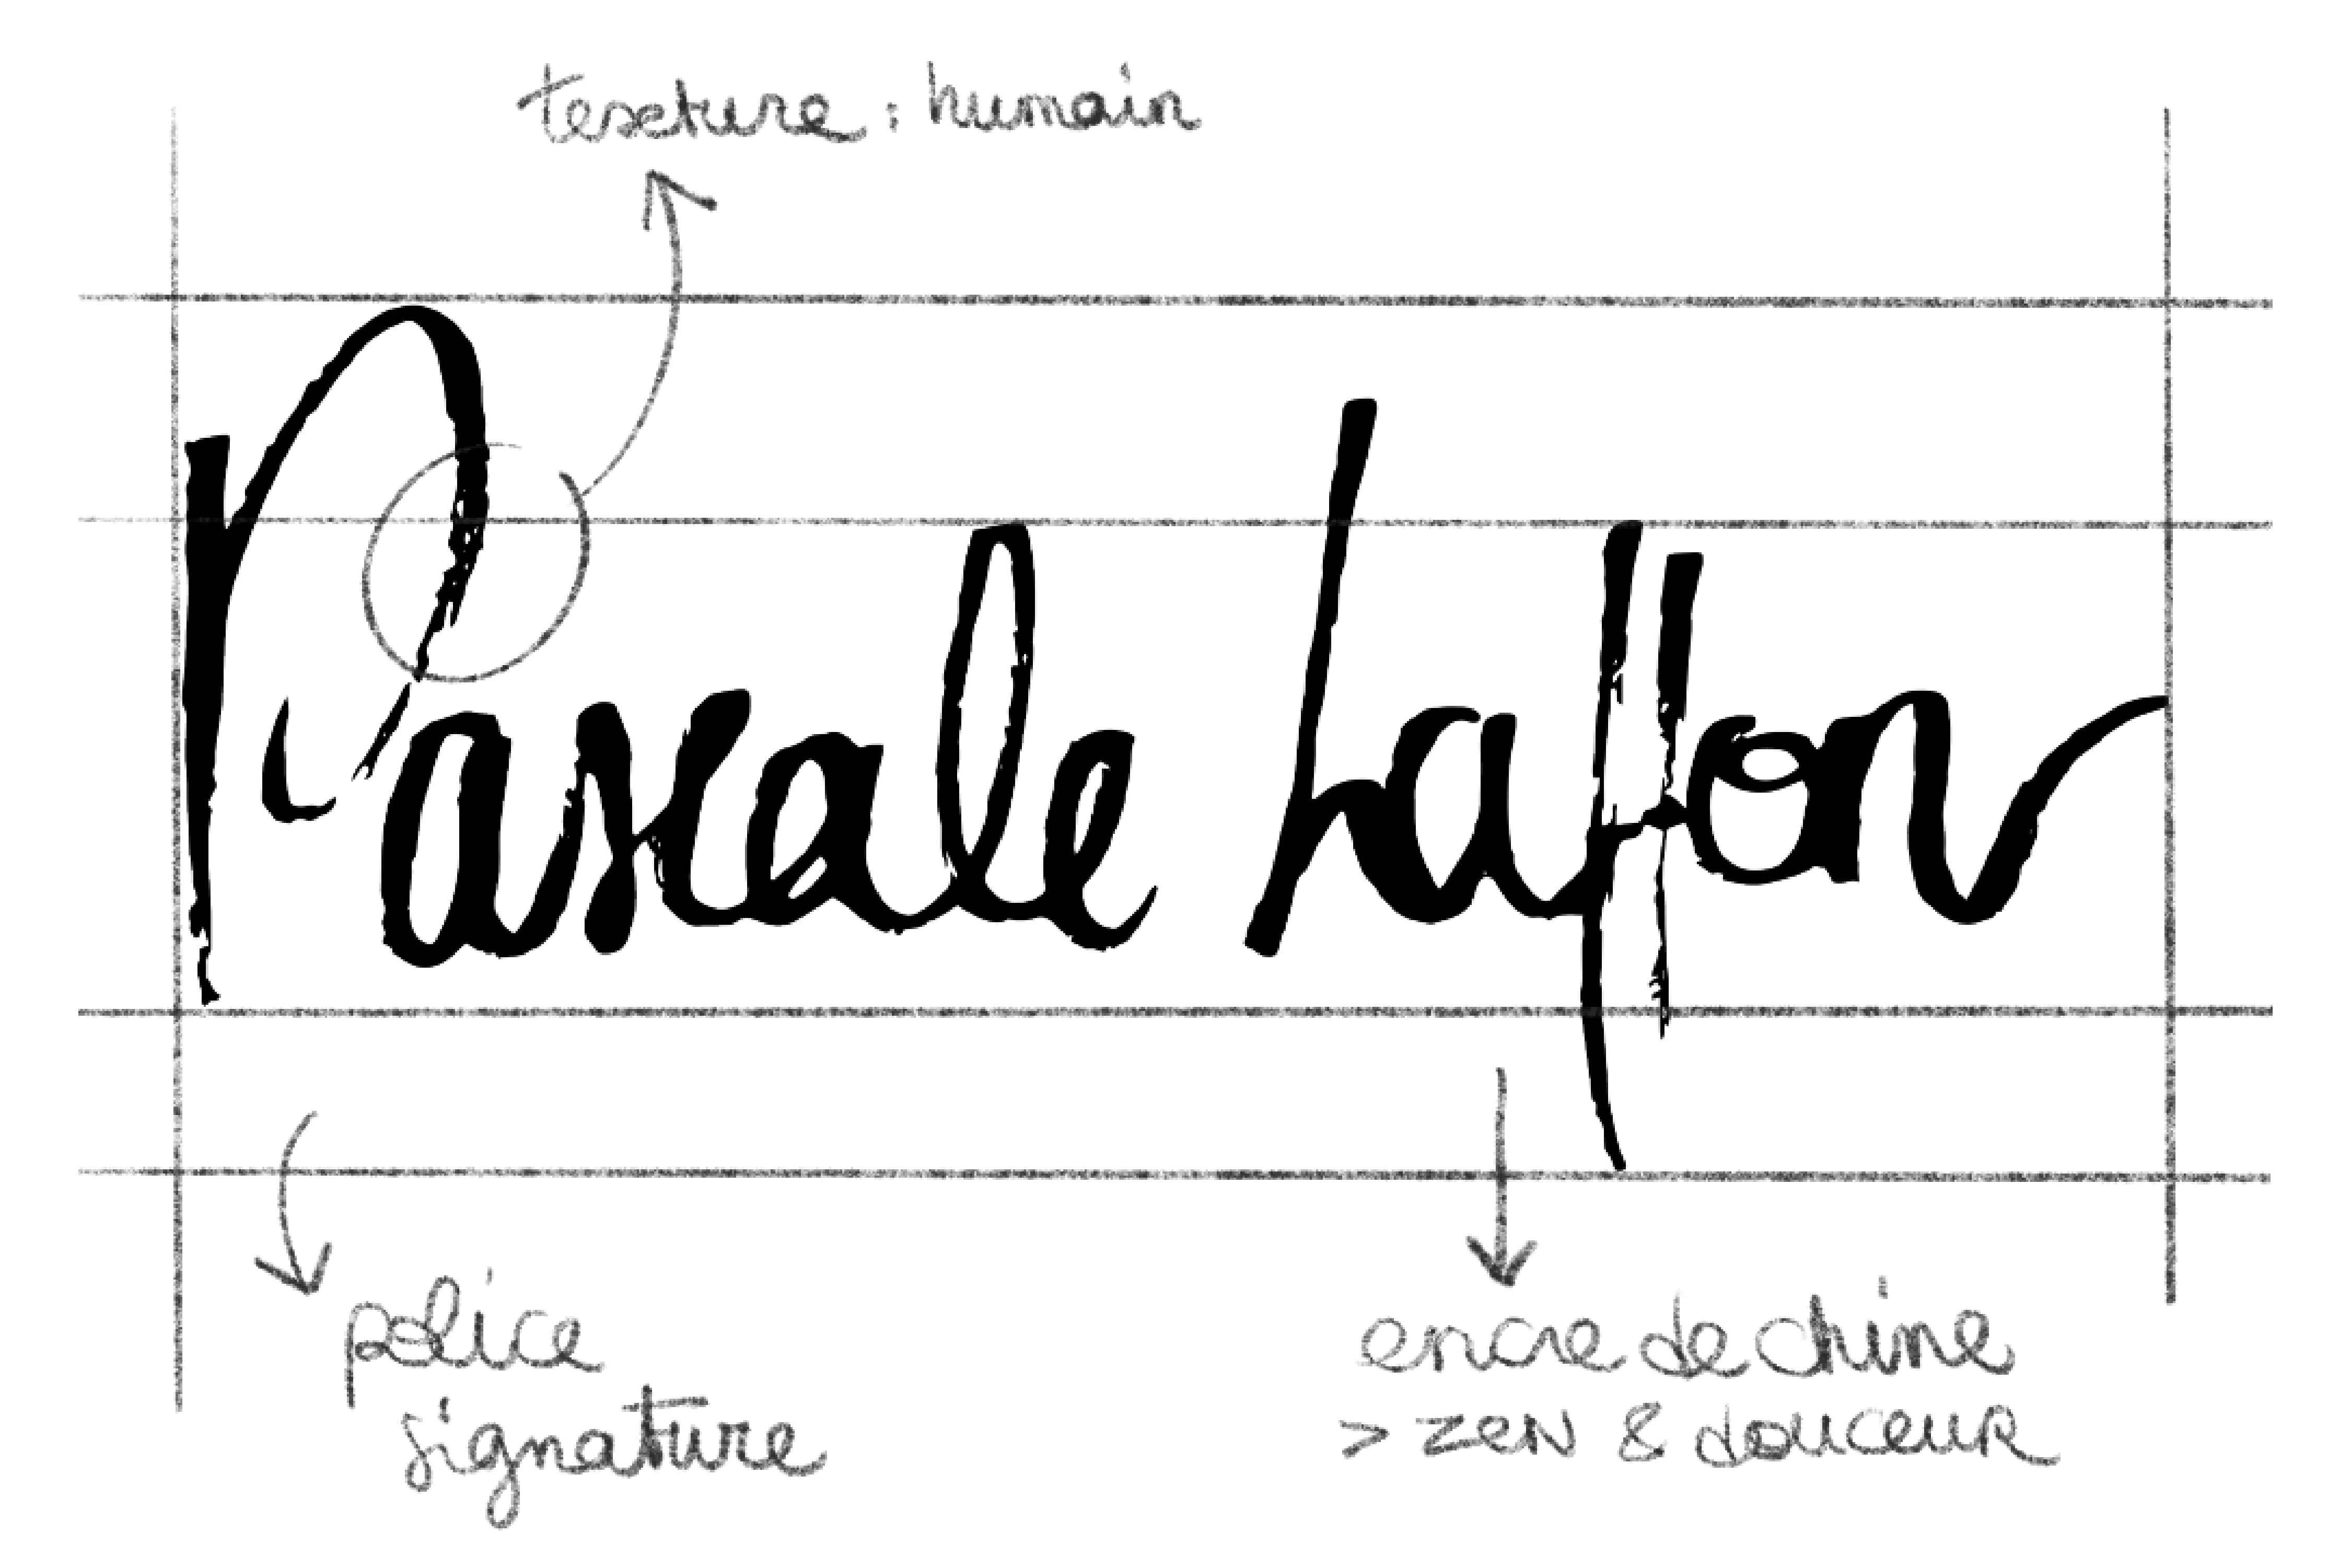 texture : humain
Pascale Laffon
police
signature
encre de chine
> zen & douceur